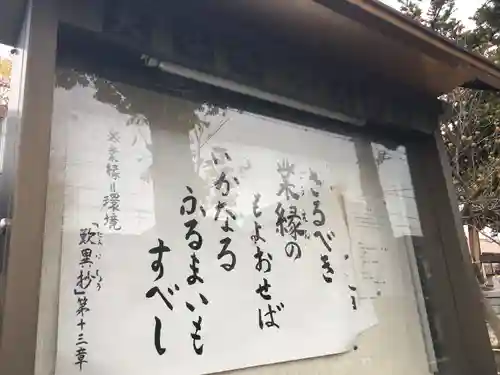 さるべき
業縁の
もよおせば
いかなる
ふるまいも
すべし
※業縁＝環境
「歎異抄」第十三章